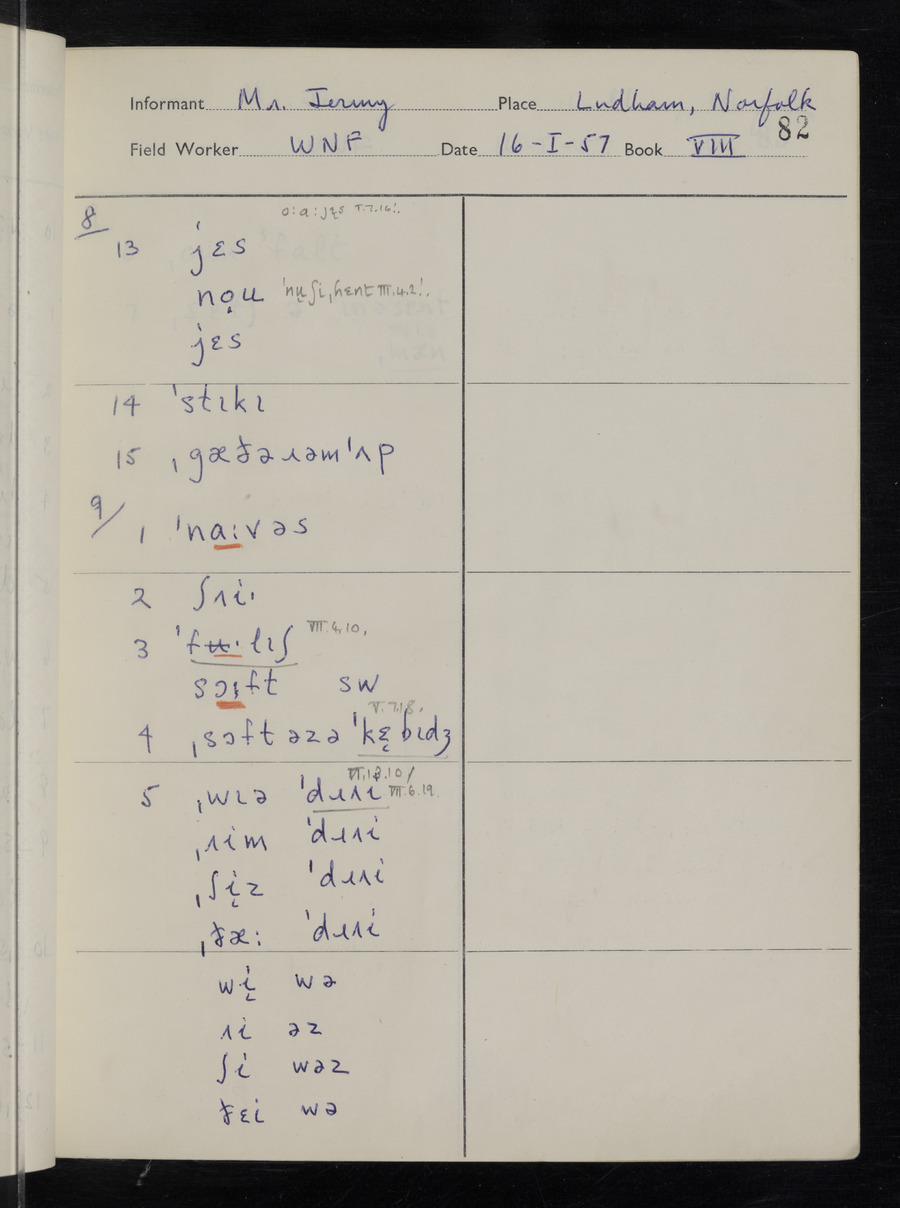 Informant Mr. Jermy Place Ludham, Norfolk
82
Field Worker WNF Date 16-I-57 Book VIII
8
13 jɛs
no̜u ˈnu̜ʃi,hɛnt III.4.2!.
jɛs
14 ˈstɩkɩ
15 ˌgæðəɹəmˈʌp
9/
1 ˈnɑːvəs
2 ʃʌiˑ
3 ˈfʉˑlɩʃ VIII.4.10.
sɔːft SW
V.7.18.
4 ˌsɔft əzə ˈkɛ̜bɩdʒ
5 ˌwɩə ˈdɹʌi VII.6.19.
ˌɹim ˈdɹʌi
ˌʃi̜z ˈdɹʌi
ˌðæː ˈdɹʌi
wi̜ wə
ɹi əz
ʃi wəz
ðɛi wə